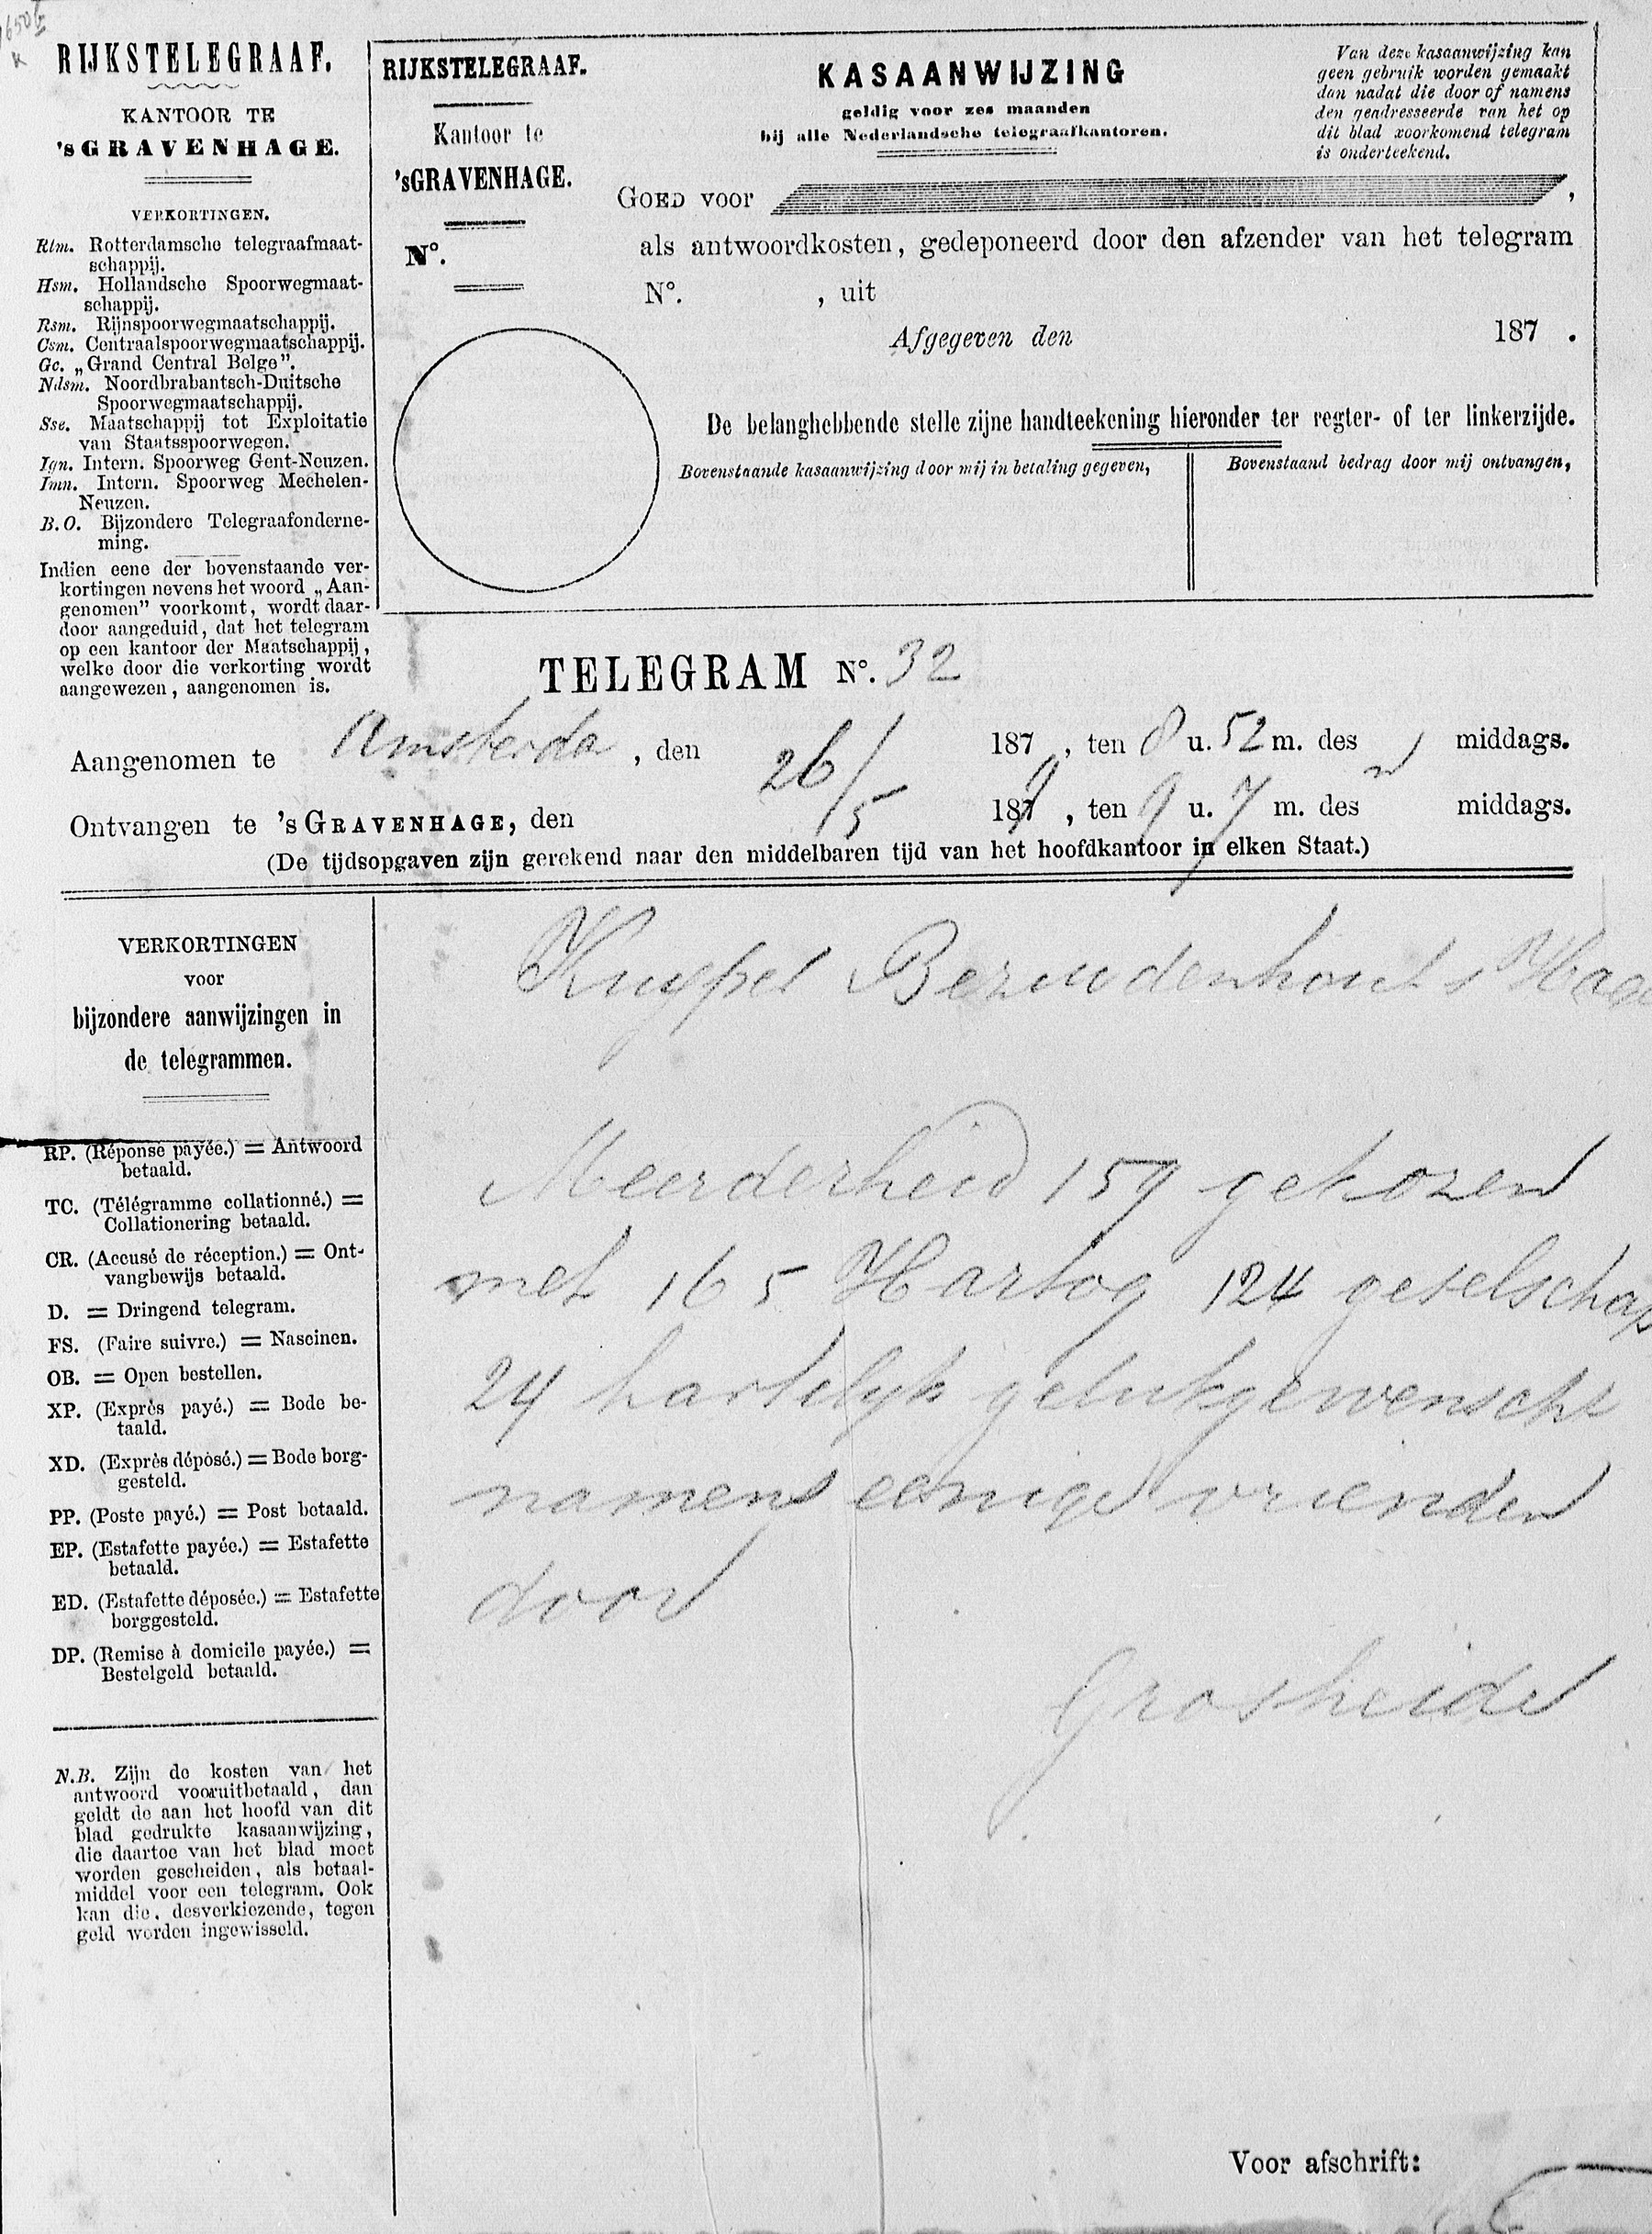 RIJKSTELEGRAAF.
KANTOOR TE
'sGRAVENHAGE.
VERKORTINGEN.
Rtm. Rotterdamsche telegraafmaat-
schappij.
Hsm. Hollandsche Spoorwegmaat-
schappij.
Rsm. Rijnspoorwegmaatschappij.
Csm. Centraalspoorwegmaatschappij.
Gc. „Grand Central Belge".
Ndsm. Noordbrabantsch-Duitsche
Spoorwegmaatschappij.
Sse. Maatschappij tot Exploitatie
van Staatsspoorwegen.
Ign. Intern. Spoorweg Gent-Neuzen.
Imn. Intern. Spoorweg Mechelen-
Neuzen.
B.O. Bijzondere Telegraafonderne-
ming.
Indien eene der bovenstaande ver-
kortingen nevens het woord „Aan-
genomen" voorkomt, wordt daar-
door aangeduid, dat het telegram
op een kantoor der Maatschappij,
welke door die verkorting wordt
aangewezen, aangenomen is.
RIJKSTELEGRAAF.
Kantoor te
'sGRAVENHAGE.
N°.
KASAANWIJZING
geldig voor zes maanden
bij alle Nederlandsche telegraafkantoren.
Van deze kasaanwijzing kan
geen gebruik worden gemaakt
dan nadat die door of namens
den geadresseerde van het op
dit blad voorkomend telegram
is onderteekend.
GOED VOOR ,
als antwoordkosten, gedeponeerd door den afzender van het telegram
N°. , uit
Afgegeven den 187 .
De belanghebbende stelle zijne handteekening hieronder ter regter- of ter linkerzijde.
Bovenstaande kasaanwijzing door mij in betaling gegeven,
Bovenstaand bedrag door mij ontvangen,
TELEGRAM N°. 32
Aangenomen te Amsterda , den 26/5 187 , ten 8 u. 52 m. des n middags.
Ontvangen te 's GRAVENHAGE, den 1879 , ten 9 u. 7 m. des middags.
(De tijdsopgaven zijn gerekend naar den middelbaren tijd van het hoofdkantoor in elken Staat.)
VERKORTINGEN
voor
bijzondere aanwijzingen in
de telegrammen.
RP. (Réponse payée.) = Antwoord
betaald.
TC. (Télégramme collationné.) =
Collationering betaald.
CR. (Accusé de réception.) = Ont-
vangbewijs betaald.
D. = Dringend telegram.
FS. (Faire suivre.) = Naseinen.
OB. = Open bestellen.
XP. (Exprès payé.) = Bode be-
taald.
XD. (Exprès déposé.) = Bode borg-
gesteld.
PP. (Poste payé.) = Post betaald.
EP. (Estafette payée.) = Estafette
betaald.
ED. (Estafette déposée.) = Estafette
borggesteld.
DP. (Remise à domicile payée.) =
Bestelgeld betaald.
N.B. Zijn de kosten van het
antwoord vooruitbetaald, dan
geldt de aan het hoofd van dit
blad gedrukte kasaanwijzing,
die daartoe van het blad moet
worden gescheiden, als betaal-
middel voor een telegram. Ook
kan die, desverkiezende, tegen
geld worden ingewisseld.
Kuyper Bezuidenhout s Haa
Meerderheid 159 gekozen
met 165 Hartog 124 geselschap
24 hartelyk gelukgewenscht
namens eenige vrienden
door
Grosheide
Voor afschrift: